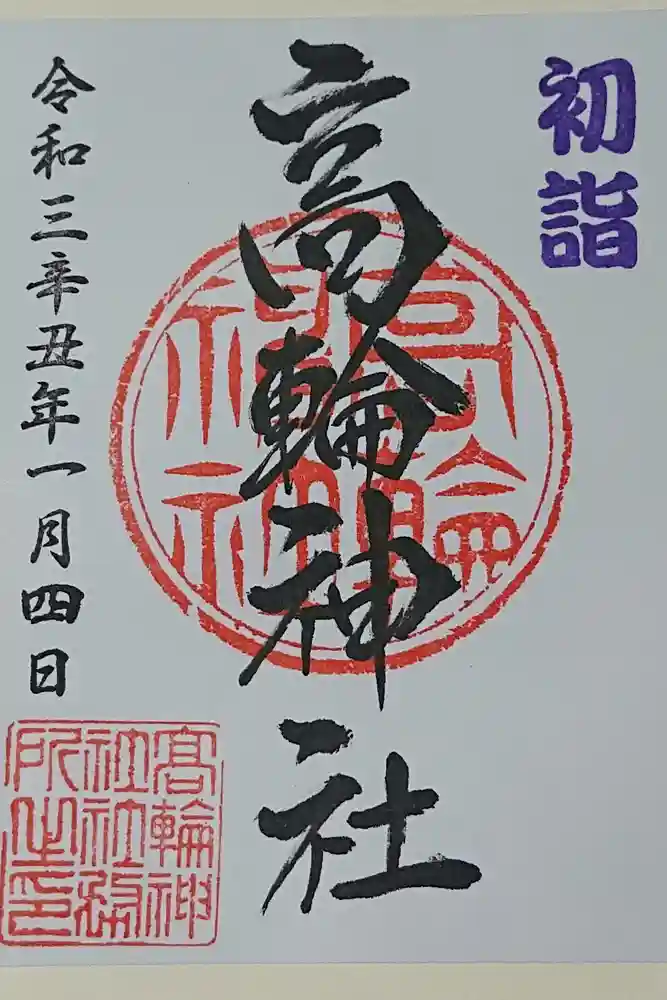 初詣
高輪神社
令和三辛丑年一月四日
高輪神
社社務
所之印